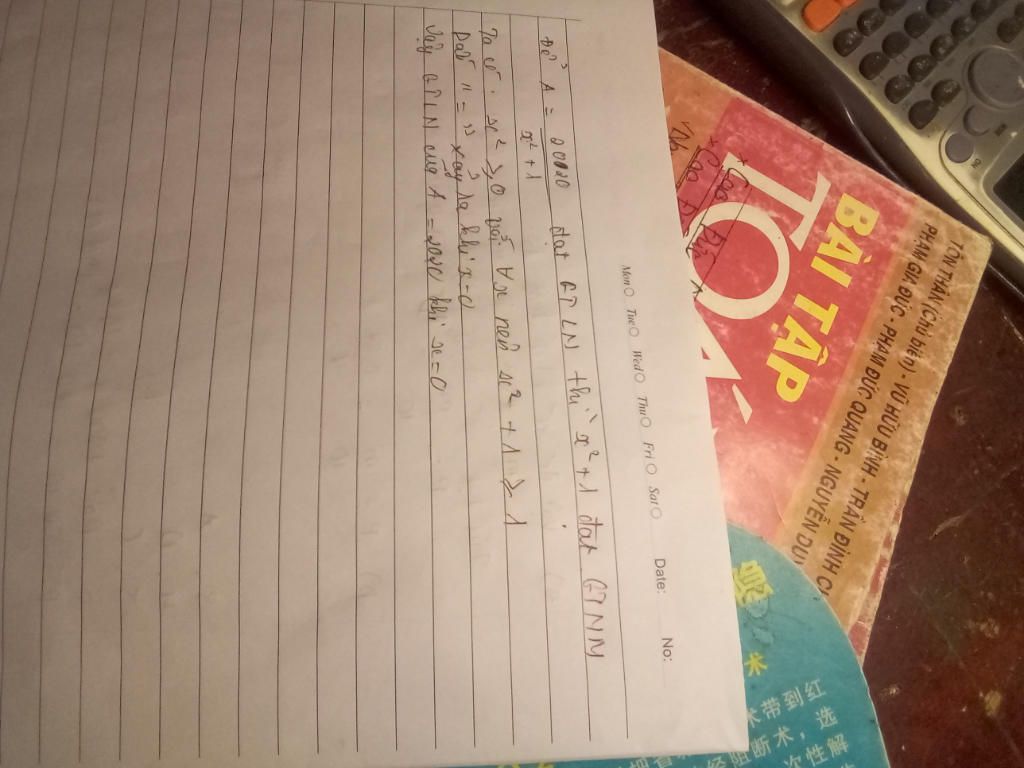 Mon Tue Wed Thu Fri Sat Date: No:
Để A = 2020 / x² + 1 đạt GTLN thì x² + 1 đạt GTNN
Ta có: x² ≥ 0 với ∀x nên x² + 1 ≥ 1
Dấu "=" xảy ra khi x=0
Vậy GTLN của A = 2020 khi x=0
TÔN THÂN (Chủ biên) - VŨ HỮU BÌNH - TRẦN ĐÌNH
PHẠM GIA ĐỨC - PHẠM ĐỨC QUANG - NGUYỄN DUY
BÀI TẬP
TOÁ
术
术带到红
断术，选
次性解